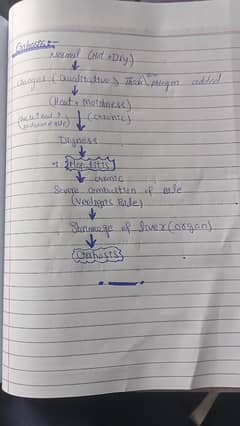 Cirrhosis:-
Normal (Hot + Dry)
Changes (Qualitative) Thick phlegm added
(Heat + Moistness)
(chronic)
Dryness
Hepatitis
chronic
Severe combustion of bile
(Verdigris Bile)
Shrinkage of liver (organ)
Cirrhosis